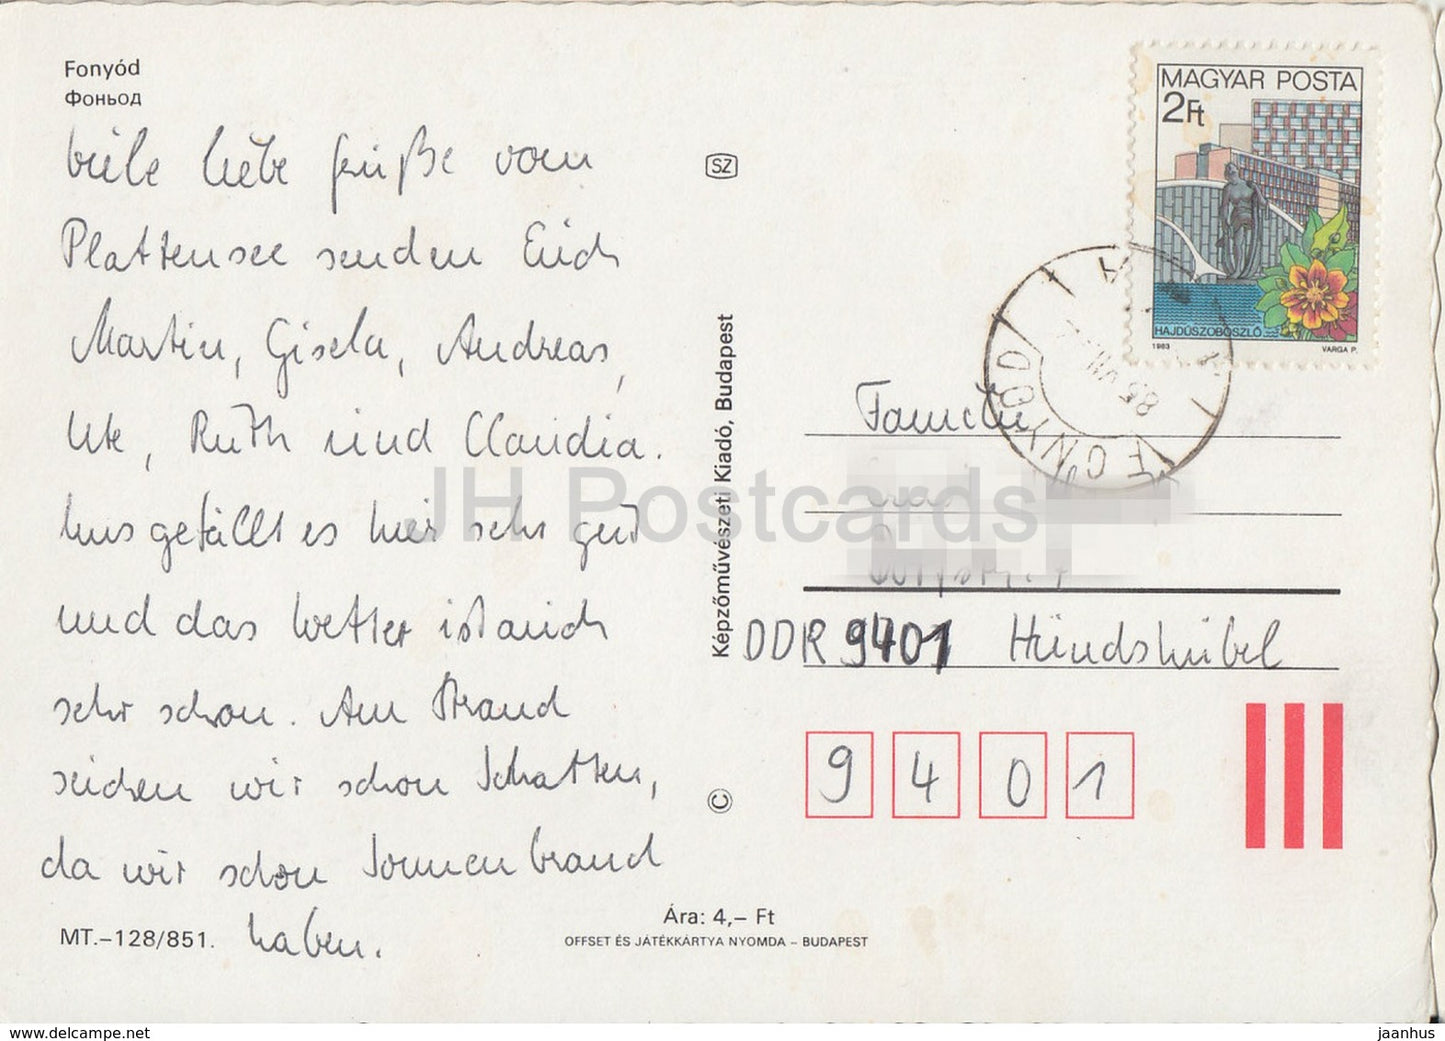 Fonyód
Фоньод
viele liebe Grüße vom
Plattensee senden Euch
Martin, Gisela, Andreas,
Ute, Ruth und Claudia.
Uns gefällt es hier sehr gut
und das Wetter ist auch
sehr schon. Am Strand
suchen wir schon Schatten,
da wir schon Sonnenbrand
haben.
MT.–128/851.
SZ
Képzőművészeti Kiadó, Budapest
©
Ára: 4,– Ft
OFFSET ÉS JÁTÉKKÁRTYA NYOMDA – BUDAPEST
MAGYAR POSTA
2Ft
HAJDÚSZOBOSZLÓ
1983 VARGA P.
FONYÓD
85 VII
Familie
DDR 9401 Hundshübel
9 4 0 1
JH Postcards
www.delcampe.net
jaanhus